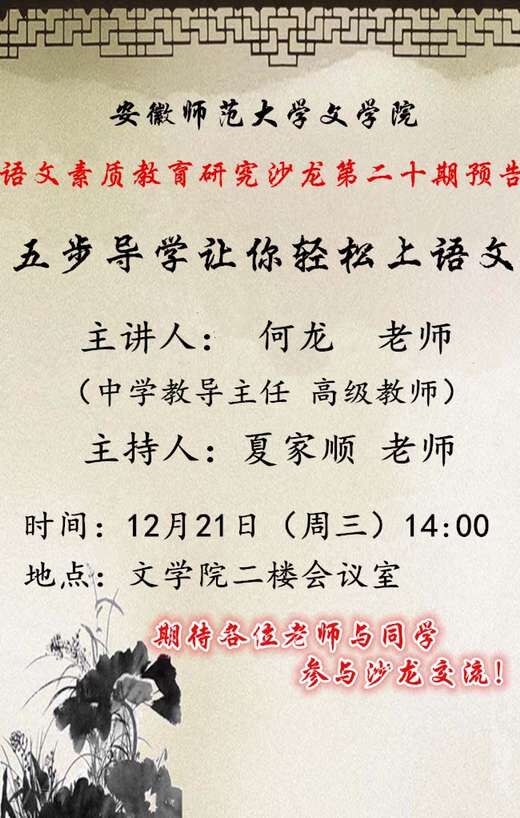 安徽师范大学文学院
语文素质教育研究沙龙第二十期预告
五步导学让你轻松上语文
主讲人： 何龙 老师
（中学教导主任 高级教师）
主持人：夏家顺 老师
时间：12月21日（周三）14:00
地点：文学院二楼会议室
期待各位老师与同学
参与沙龙交流！